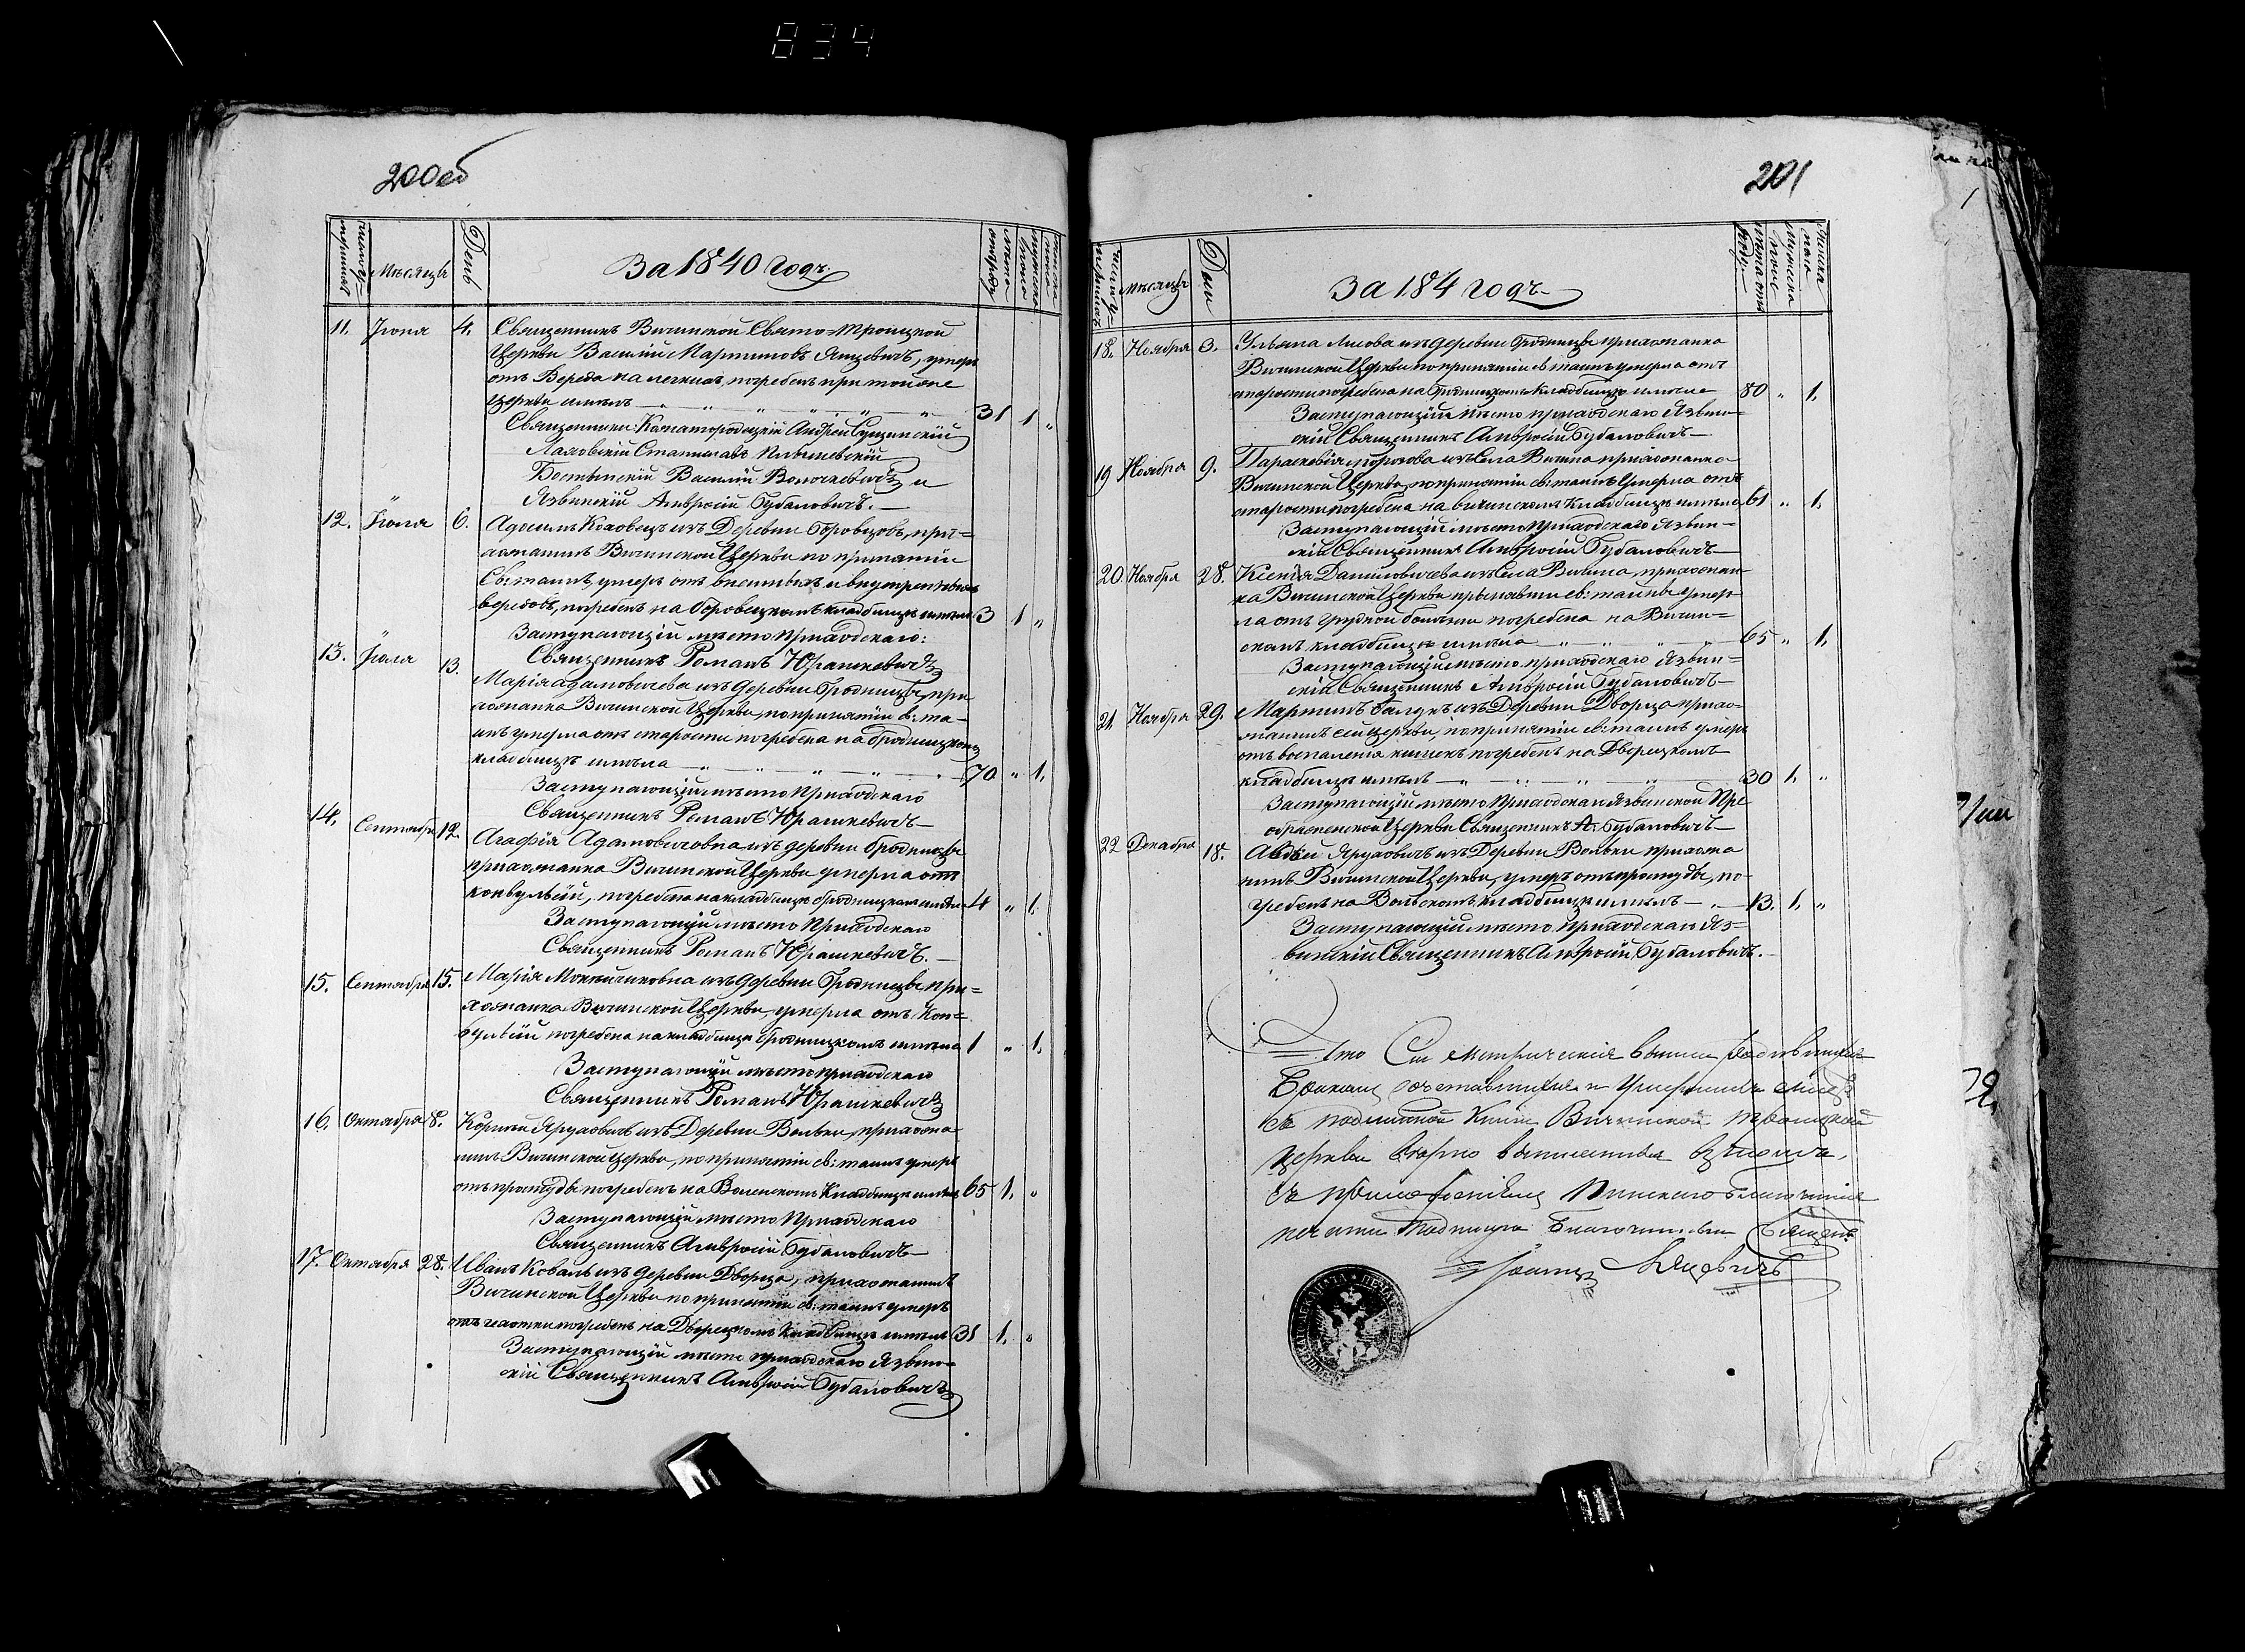 834
200об
Число умершихъ
Мѣсяцъ
День
За 1840 Годъ
11. Іюня 4. Священникъ Вичинской Свято=Троицкой
Церкви Василій Мартиновъ Яцкевичъ, умеръ
отъ Вереда на легкихъ, погребенъ при той же
Церкви имѣлъ 31 1 "
Священники: Кожангородецкій Андрей Сущинскій
Лаховскій Станиславъ
Василій и
Язвинскій Амвросій Будзаловичъ.
12. Іюля 6. изъ Деревни Бровцовъ, при=
хожанинъ Вичинской Церкви по принятіи
Св: таинъ, умеръ отъ внешныхъ и внутреннихъ
вередовъ, погребенъ на кладбищѣ имѣлъ 3 1 "
Заступающій мѣсто Приходскаго:
Священникъ Романъ Юрашкевичъ
13. Іюля 13. Марія Адамовичева изъ Деревни Бродницы, при
хожанка Вичинской Церкви, по принятіи св: та-
инъ умерла отъ старости погребена на Бродницкомъ
кладбищѣ имѣла 70 " 1.
Заступающій мѣсто Приходскаго
Священникъ Романъ Юрашкевичъ
14. Сентября 12. Агафія Адамовичовна изъ деревни Бродницы
прихожанка Вичинской Церкви умерла отъ
конвульсій, погребена на кладбищѣ Бродницкомъ имѣла 4 " 1.
Заступающій мѣсто Приходскаго
Священникъ Романъ Юрашкевичъ.
15. Сентября 15. Марія изъ Деревни Бродницы, при=
хожанка Вичинской Церкви, умерла отъ Кон=
вульсій погребена на кладбищѣ Бродницкомъ имѣла 1 " 1.
Заступающій мѣсто приходскаго
Священникъ Романъ Юрашкевичъ
16. Октября 8. Корнѣй Ярузовичъ изъ Деревни Вольки, прихожа-
нинъ Вичинской Церкви, по принятіи св: таинъ умеръ
отъ простуды погребенъ на Кладбищѣ имѣлъ 65 1. "
Заступающій мѣсто Приходскаго
Священникъ Амвросій Будзаловичъ
17. Октября 28. Иванъ Коваль изъ Деревни Дворца, прихожанинъ
Вичинской Церкви по принятіи св: таинъ умеръ
отъ чахотки погребенъ на Дворецкомъ Кладбищѣ имѣлъ 31 1. "
Заступающій мѣсто приходскаго Язвин-
скій Священникъ Амвросій Будзаловичъ
201
Мѣсяцъ
Дни
За 184 годъ
18. Ноября 3. Ульяна Лисова изъ Деревни Бродницы прихожанка
Вичинской Церкви по принятіи св: таинъ умерла отъ
старости погребена на Бродницкомъ Кладбищѣ имѣла 80 " 1.
Заступающій мѣсто приходскаго Язвин-
скій Священникъ Амвросій Будзаловичъ
19 Ноября 9. Параскевія изъ Села Вичина прихожанка
Вичинской Церкви, по принятіи св: таинъ умерла отъ
старости погребена на Вичинскомъ Кладбищѣ имѣла 61 " 1.
Заступающій мѣсто Приходскаго Язвин-
скій Священникъ Амвросій Будзаловичъ
20. Ноября 28. Ксенія Даниловичева изъ Села Вичина, прихожан-
ка Вичинской Церкви принявши св: таины умер-
ла отъ грудной болѣзни погребена на Вичин-
скомъ кладбищѣ имѣла 65 " 1.
Заступающій мѣсто приходскаго Язвин=
скій Священникъ Амвросій Будзаловичъ
21. Ноября 29. Мартинъ изъ Деревни Дворца прихо-
жанинъ сей Церкви, по принятіи св: таинъ умеръ
отъ воспаленія кишекъ погребенъ на Дворецкомъ
кладбищѣ имѣлъ 30 1. "
Заступающій мѣсто Приходскаго Язвинской Пре-
ображенской Церкви Священникъ А. Будзаловичъ
22 Декабря 18. Авдѣй Ярузовичъ изъ Деревни Вольки прихожа
нинъ Вичинской Церкви, умеръ отъ простуды, по-
гребенъ на Вольскомъ кладбищѣ имѣлъ 13. 1. "
Заступающій мѣсто Приходскаго Яз=
винскій Священникъ Амвросій Будзаловичъ.
Что Сіи метрическія о родившихся
Бракомъ сочетавшихся и Умершихъ
съ подлинной Книги Вичинской Троицкой
церкви вѣрно
съ приложеніемъ Пинскаго Благочинія
печати Подписую Благочинный Священ.